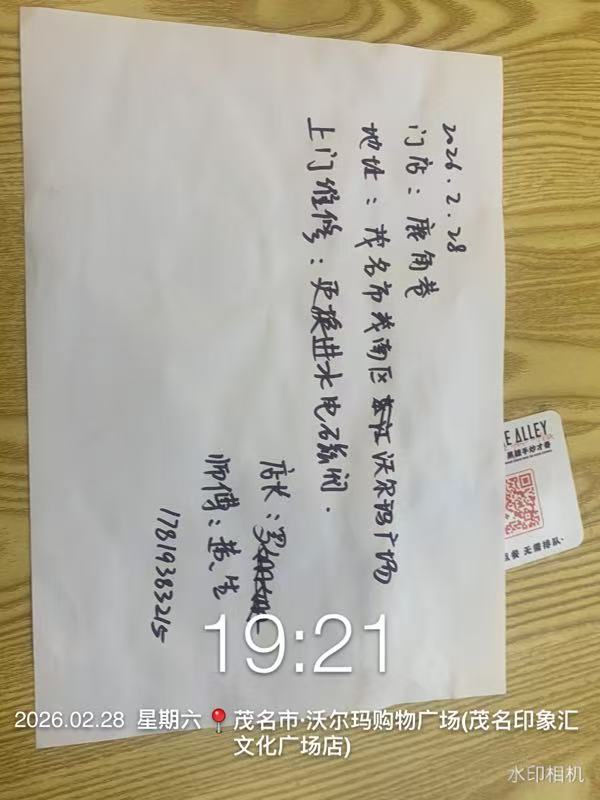 2026.2.28
门店：鹿角巷
地址：茂名市茂南区 江沃尔玛广场
上门维修：更换进水电磁阀.
店长：罗
师傅：黄生
17819383215
E ALLEY
黑糖手炒才香
点餐 无需排队·
19:21
2026.02.28 星期六 茂名市·沃尔玛购物广场(茂名印象汇
文化广场店)
水印相机